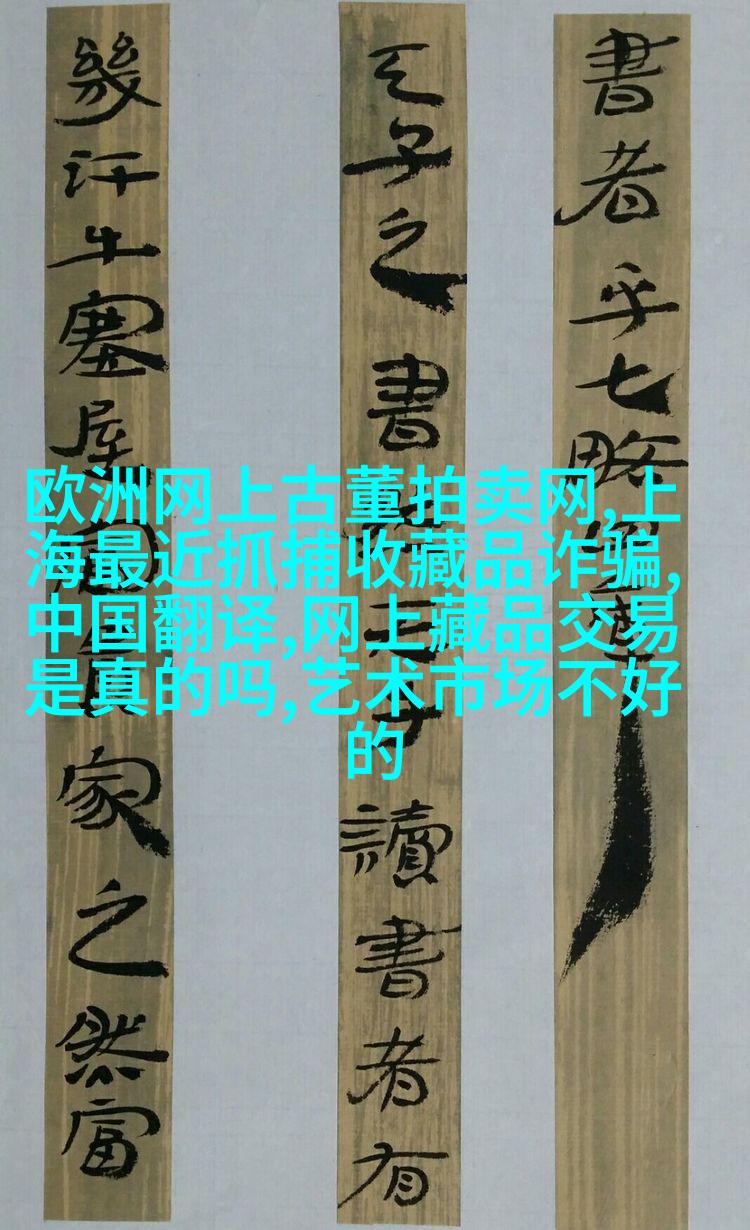 書者乎七略四庫
天子之書然天子讀書者有
幾汗牛塞屋富貴家之然富
欧洲网上古董拍卖网,上
海最近抓捕收藏品诈骗,
中国翻译,网上藏品交易
是真的吗,艺术市场不好
的